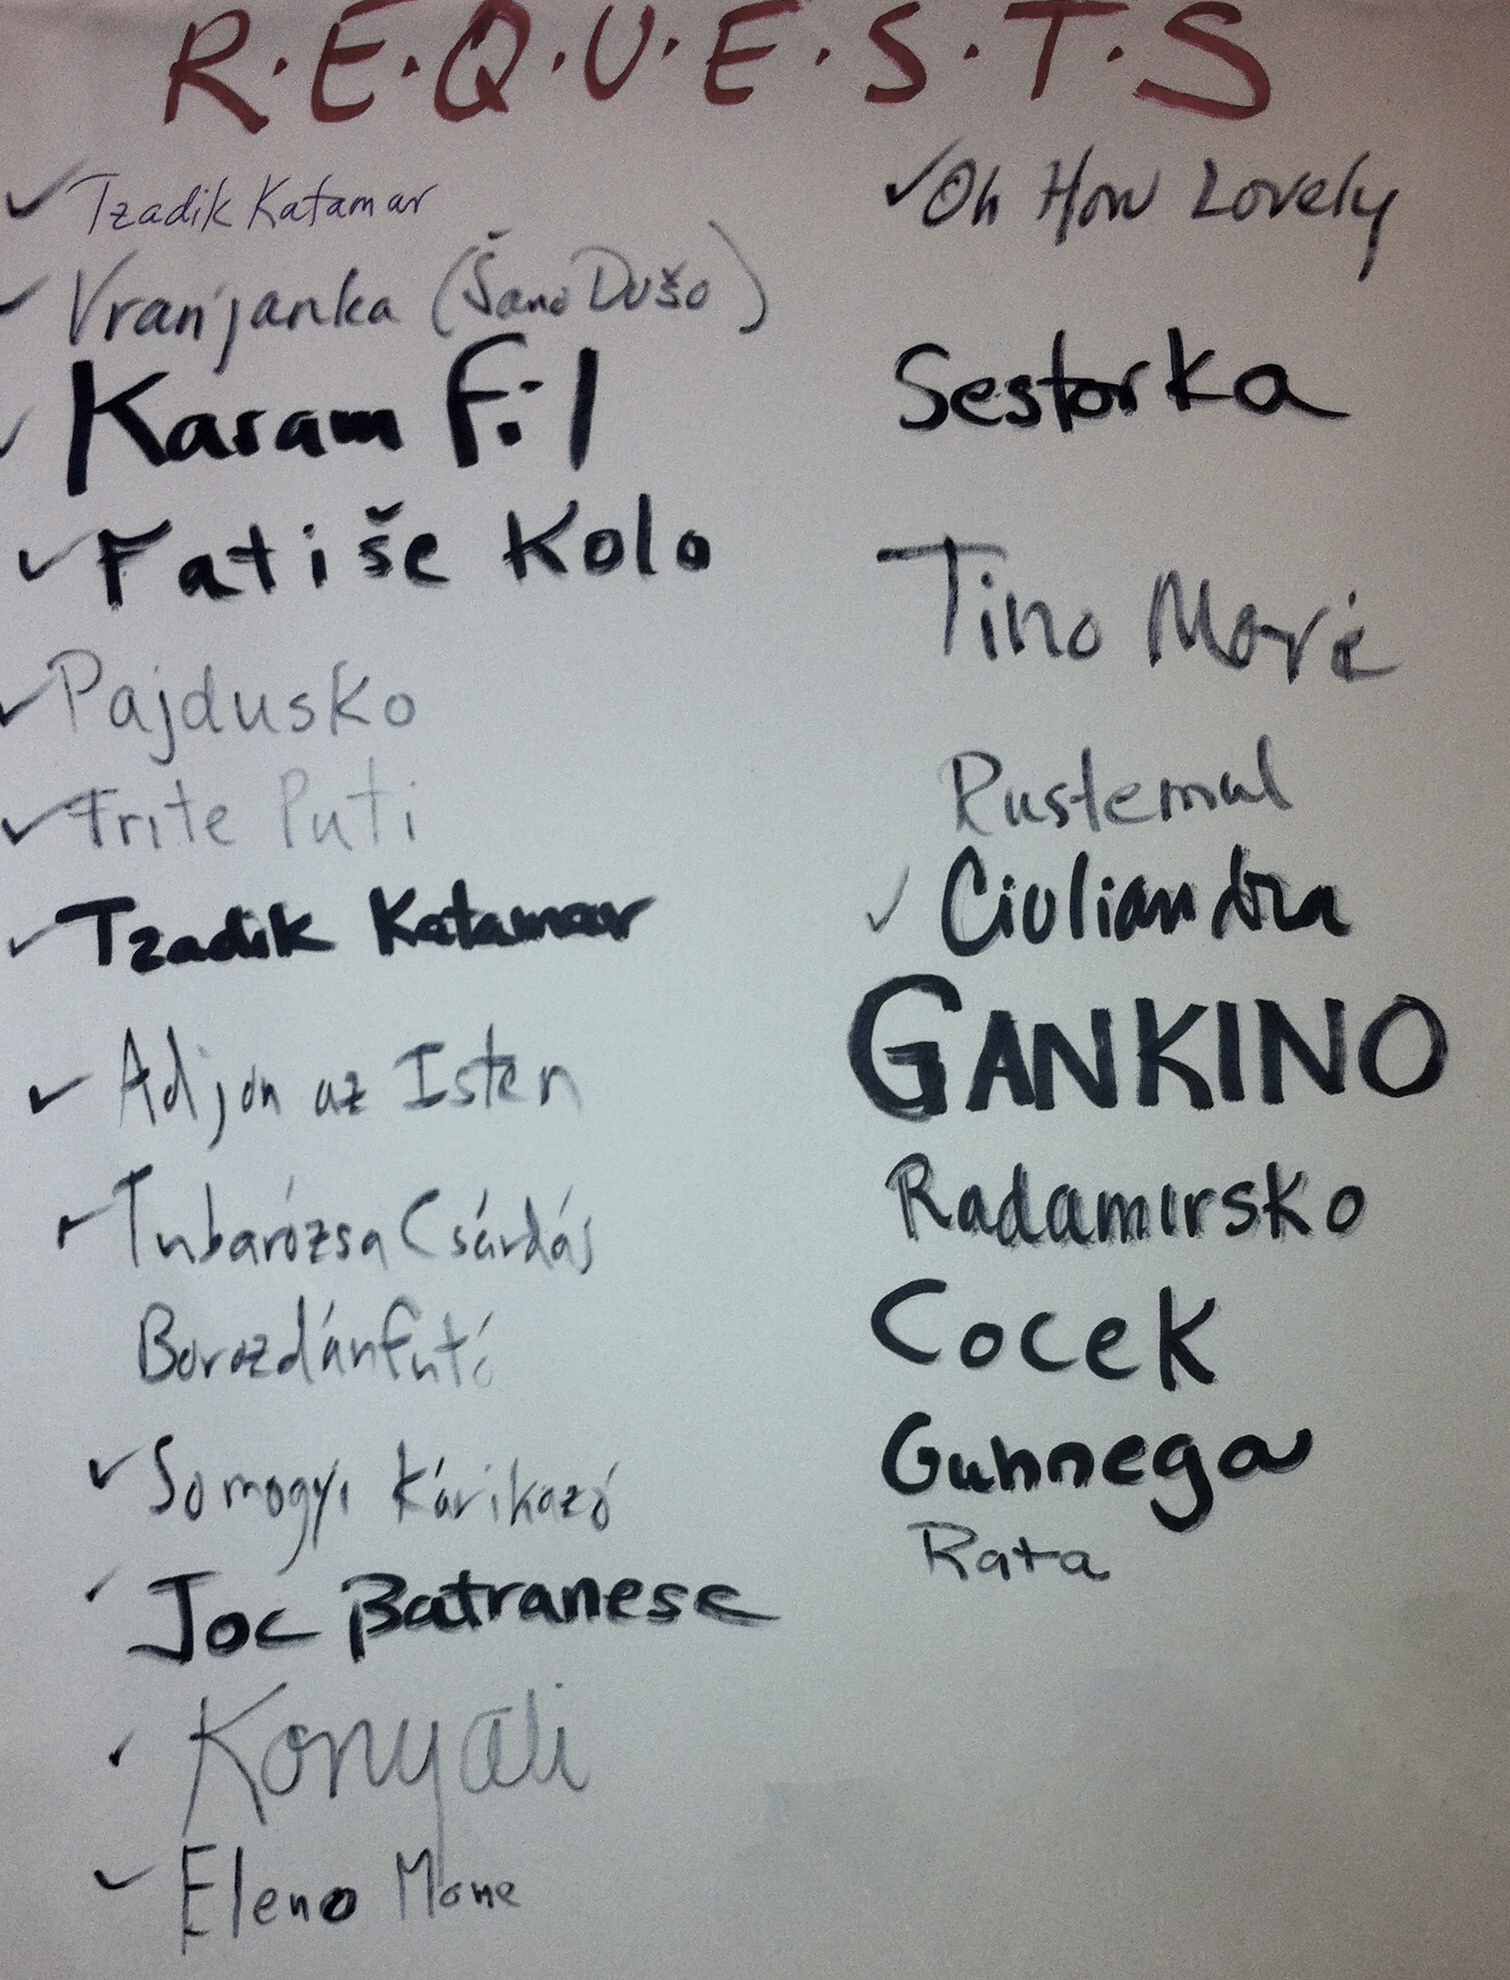 R.E.Q.U.E.S.T.S
✓ Tzadik Katamar
✓ Vranjanka (Šano Dušo)
✓ Karamfil
✓ Fatiše Kolo
✓ Pajdusko
✓ Trite Puti
✓ Tzadik Katamar
✓ Adjon az Isten
✓ Tubarózsa Csárdás
Borozdánfutó
✓ Somogyi Kárikazó
✓ Joc Batranesc
✓ Konyali
✓ Eleno Mome
✓ Oh How Lovely
Sestorka
Tino Mori
Rustemul
✓ Ciuliandra
GANKINO
Radamirsko
Cocek
Guhnega
Rata